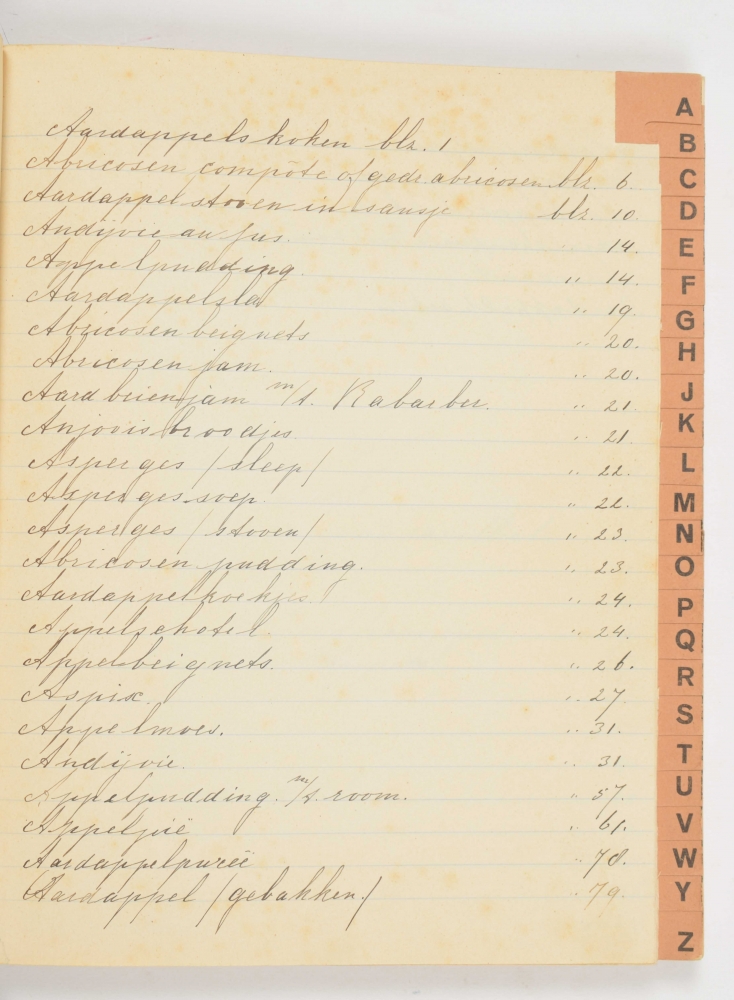 Aardappels koken blz. 1
Abricosen compôte of gedr. abricosen blz. 6.
Aardappel stoven in sausje blz. 10.
Andijvie au jus. " 14.
Appelpudding " 14.
Aardappelsla " 19.
Abricosen beignets " 20.
Abricosen jam. " 20.
Aardbeienjam m/t. Rabarber. " 21.
Anjovis broodjes " 21.
Asperges /sleep/ " 22.
Asperges soep. " 22.
Asperges /stoven/ " 23.
Abricosen pudding. " 23.
Aardappelkoekjes " 24.
Appelschotel " 24.
Appelbeignets. " 26.
Aspix. " 27.
Appelmoes. " 31.
Andijvie. " 31.
Appelpudding. m/t. room. " 57.
Appelpië " 61.
Aardappelpureë " 78.
Aardappel /gebakken./ " 79.
A
B
C
D
E
F
G
H
J
K
L
M
N
O
P
Q
R
S
T
U
V
W
Y
Z